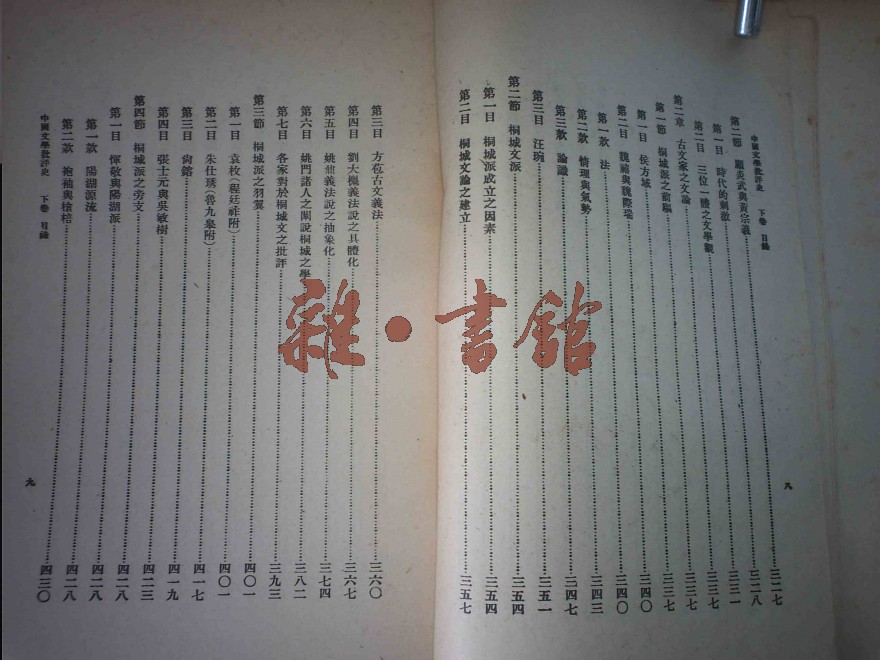 中國文學批評史 下卷 目錄
第二節 顧炎武與黃宗羲……三一七
第一目 時代的刺激……三二八
第二目 三位一體之文學觀……三三一
第二章 古文家之文論……三三七
第一節 桐城派之前驅……三三七
第一目 侯方域……三三七
第二目 魏禧與魏際瑞……三四〇
第一款 法……三四〇
第二款 情理與氣勢……三四三
第三款 論識……三四七
第三目 汪琬……三五一
第二節 桐城文派……三五四
第一目 桐城派成立之因素……三五四
第二目 桐城文論之建立……三五七
八
第三目 方苞古文義法……三六〇
第四目 劉大櫆義法說之具體化……三六七
第五目 姚鼐義法說之抽象化……三七四
第六目 姚門諸人之闡說桐城之學……三八二
第七目 各家對於桐城文之批評……三九三
第三節 桐城派之羽翼……四〇一
第一目 袁枚(程廷祚附)……四〇一
第二目 朱仕琇(魯九皋附)……四一七
第三目 尚鎔……四一九
第四目 張士元與吳敏樹……四二三
第四節 桐城派之旁支……四二八
第一目 惲敬與陽湖派……四二八
第一款 陽湖源流……四二八
第二款 袍袖與槍棓……四三〇
中國文學批評史 下卷 目錄
九
雜·書館